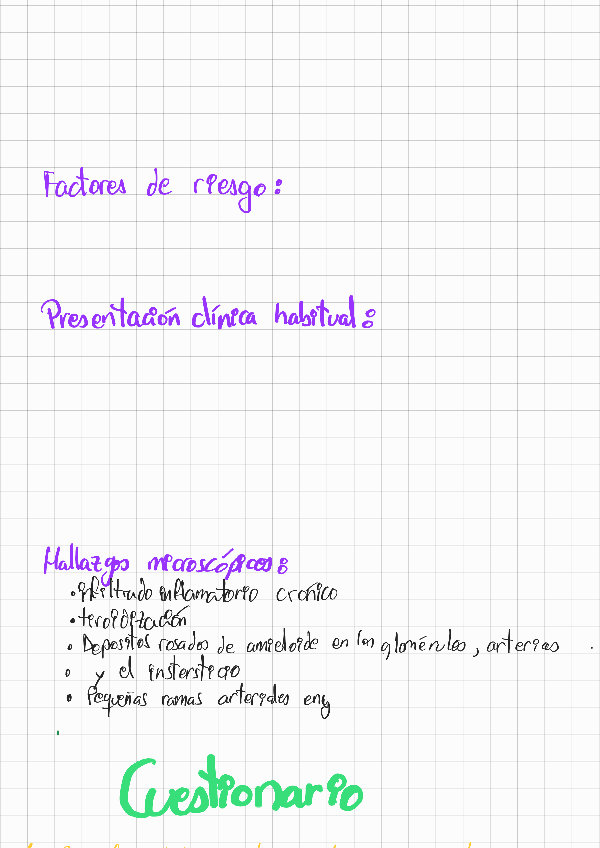 Factores de riesgo:
Presentación clínica habitual:
Hallazgos microscópicos:
• infiltrado inflamatorio crónico
• tiroidización
• Depositos rosados de amieloide en los glomérulos, arterias
• y el insterstecio
• Pequeñas ramas arteriales eng
Cuestionario